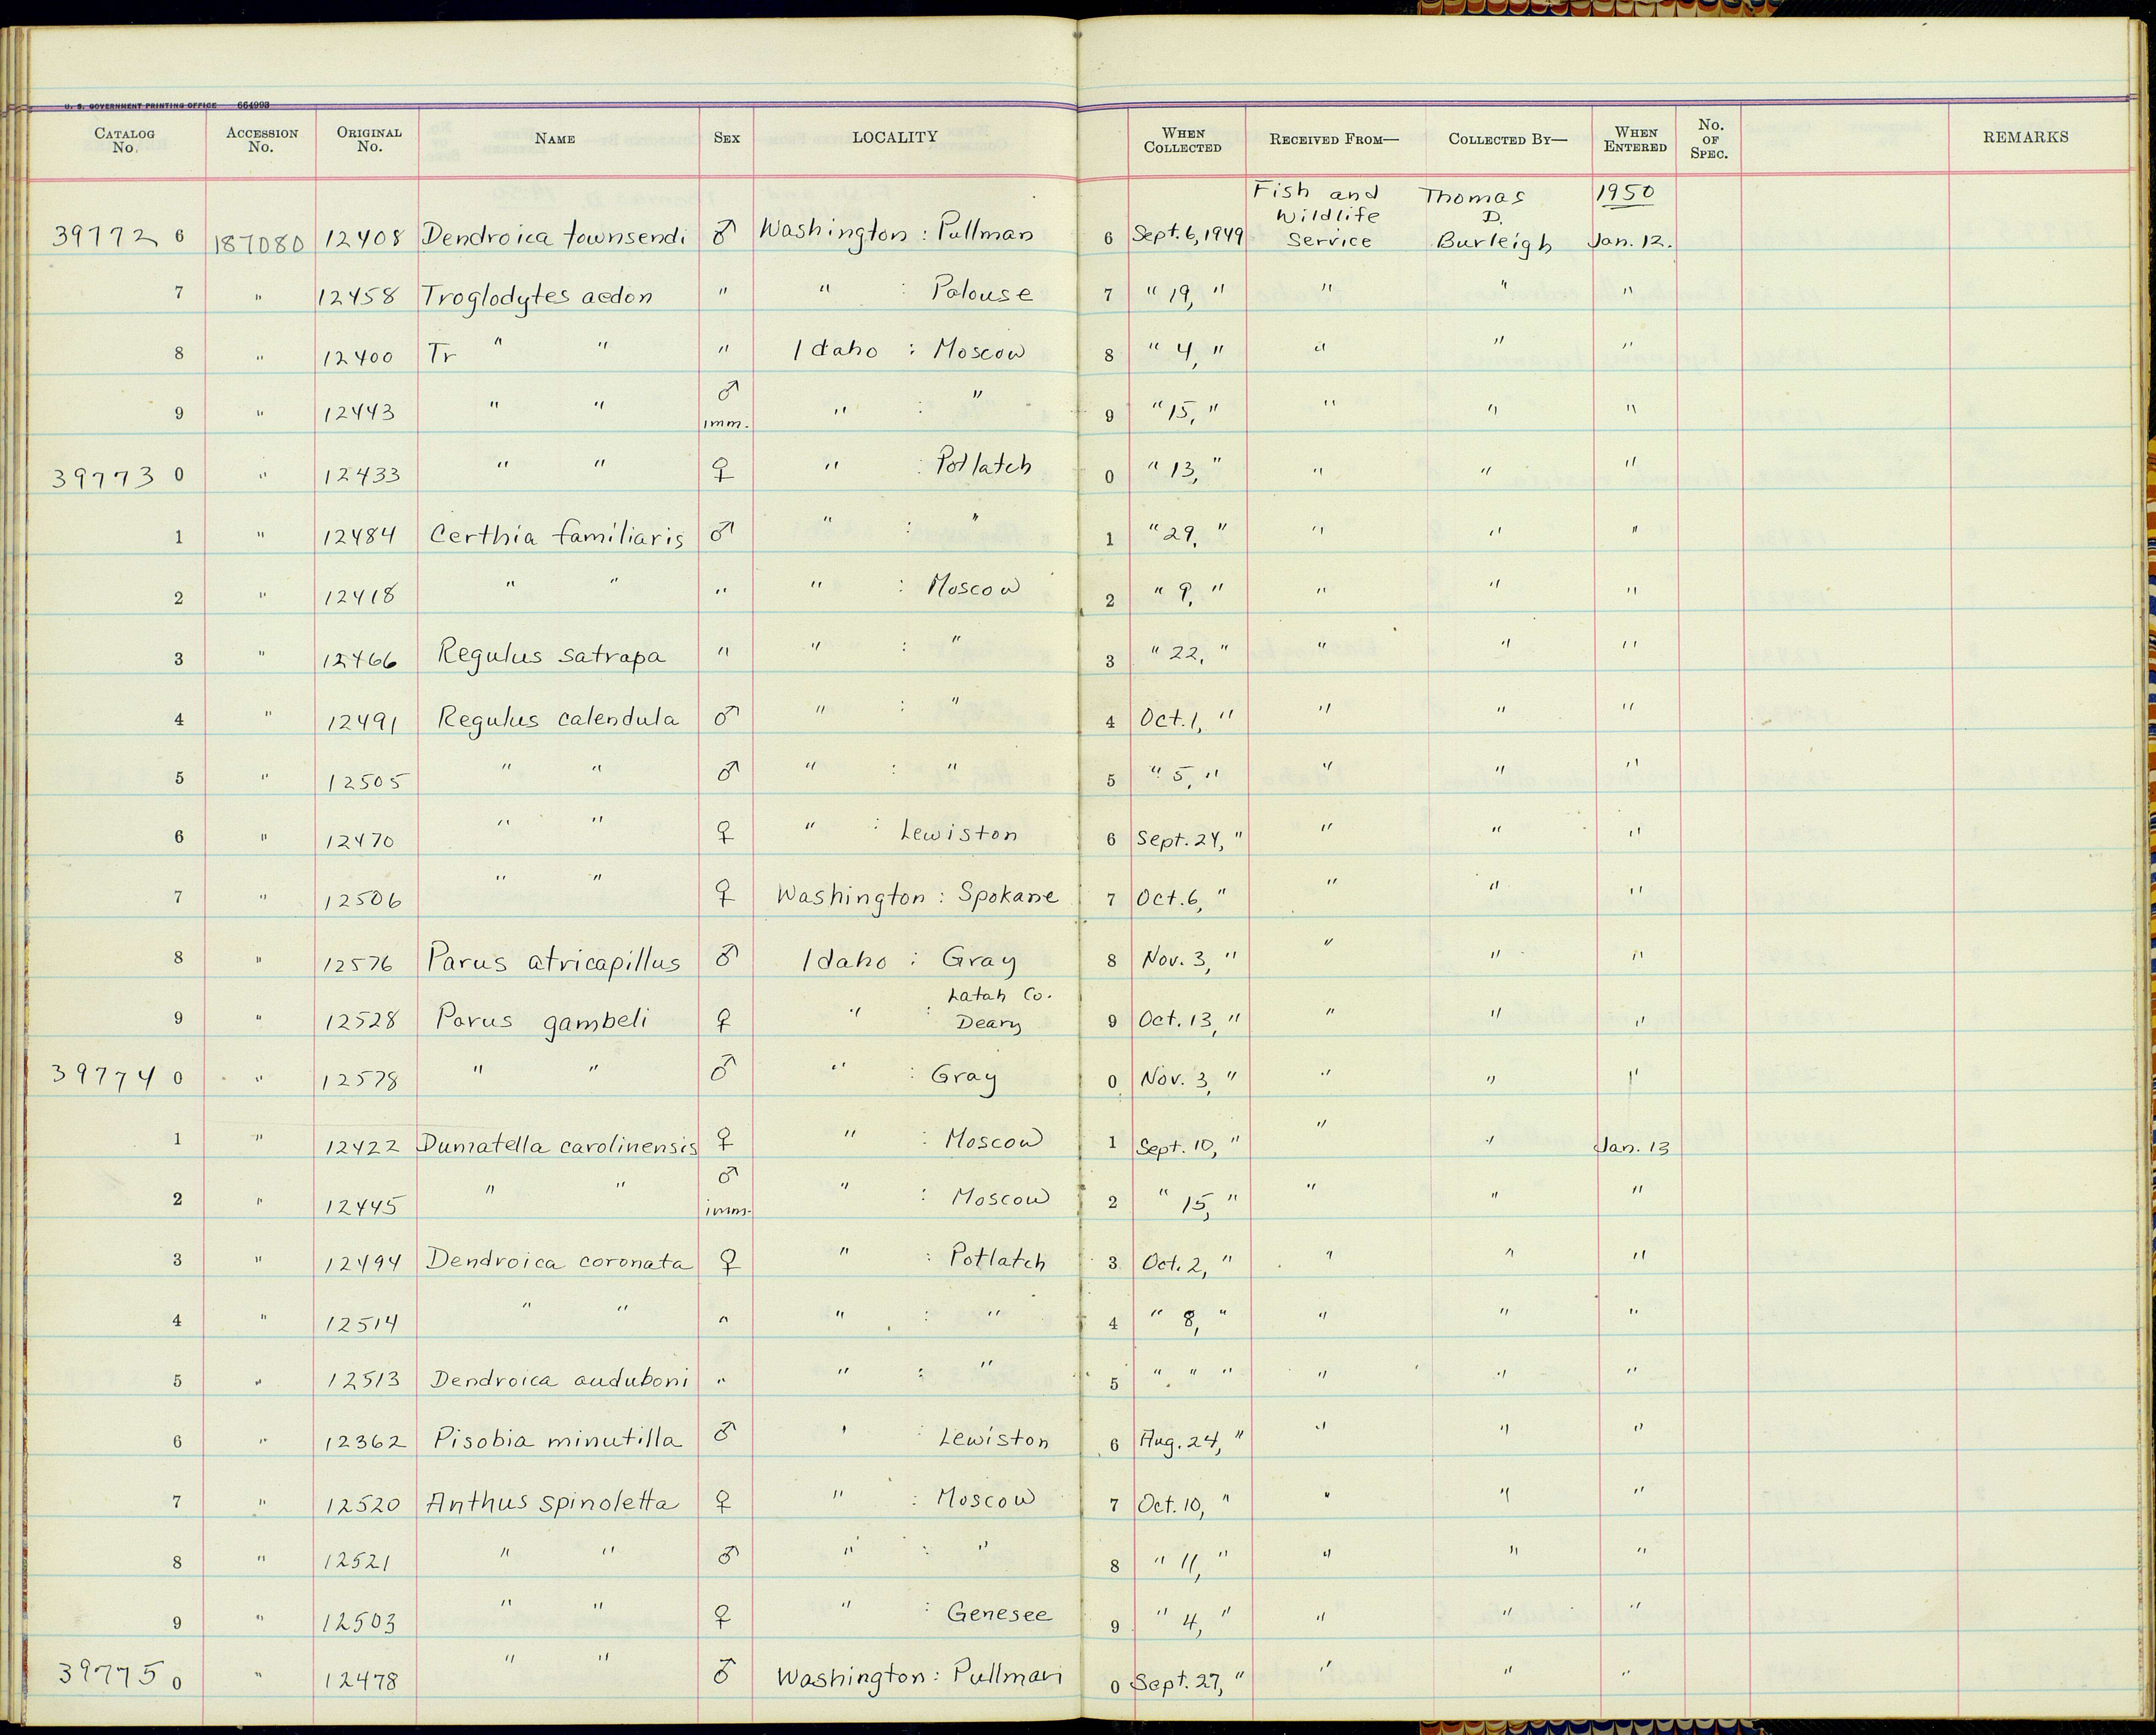 U. S. GOVERNMENT PRINTING OFFICE 664993
CATALOG No. ACCESSION No. ORIGINAL No. NAME SEX LOCALITY WHEN COLLECTED RECEIVED FROM— COLLECTED BY— WHEN ENTERED No. OF SPEC. REMARKS
39772 6 187080 12408 Dendroica townsendi ♂ Washington : Pullman 6 Sept. 6, 1949 Fish and Wildlife Service Thomas D. Burleigh 1950 Jan. 12.
7 " 12458 Troglodytes aedon " " : Palouse 7 " 19, " " " "
8 " 12400 Tr " " " Idaho : Moscow 8 " 4, " " " "
9 " 12443 " " ♂ imm. " : " 9 " 15, " " " "
39773 0 " 12433 " " ♀ " : Potlatch 0 " 13, " " " "
1 " 12484 Certhia familiaris ♂ " : " 1 " 29, " " " "
2 " 12418 " " " " : Moscow 2 " 9, " " " "
3 " 12466 Regulus satrapa " " : " 3 " 22, " " " "
4 " 12491 Regulus calendula ♂ " : " 4 Oct. 1, " " " "
5 " 12505 " " ♂ " : " 5 " 5, " " " "
6 " 12470 " " ♀ " : Lewiston 6 Sept. 24, " " " "
7 " 12506 " " ♀ Washington : Spokane 7 Oct. 6, " " " "
8 " 12576 Parus atricapillus ♂ Idaho : Gray 8 Nov. 3, " " " "
9 " 12528 Parus gambeli ♀ " : Latah Co. Deary 9 Oct. 13, " " " "
39774 0 " 12578 " " ♂ " : Gray 0 Nov. 3, " " " "
1 " 12422 Dumatella carolinensis ♀ " : Moscow 1 Sept. 10, " " " Jan. 13
2 " 12445 " " ♂ imm. " : Moscow 2 " 15, " " " "
3 " 12494 Dendroica coronata ♀ " : Potlatch 3 Oct. 2, " " " "
4 " 12514 " " " " : " 4 " 8, " " " "
5 " 12513 Dendroica auduboni " " : " 5 " " " " " "
6 " 12362 Pisobia minutilla ♂ " : Lewiston 6 Aug. 24, " " " "
7 " 12520 Anthus spinoletta ♀ " : Moscow 7 Oct. 10, " " " "
8 " 12521 " " ♂ " : " 8 " 11, " " " "
9 " 12503 " " ♀ " : Genesee 9 " 4, " " " "
39775 0 " 12478 " " ♂ Washington : Pullman 0 Sept. 27, " " " "